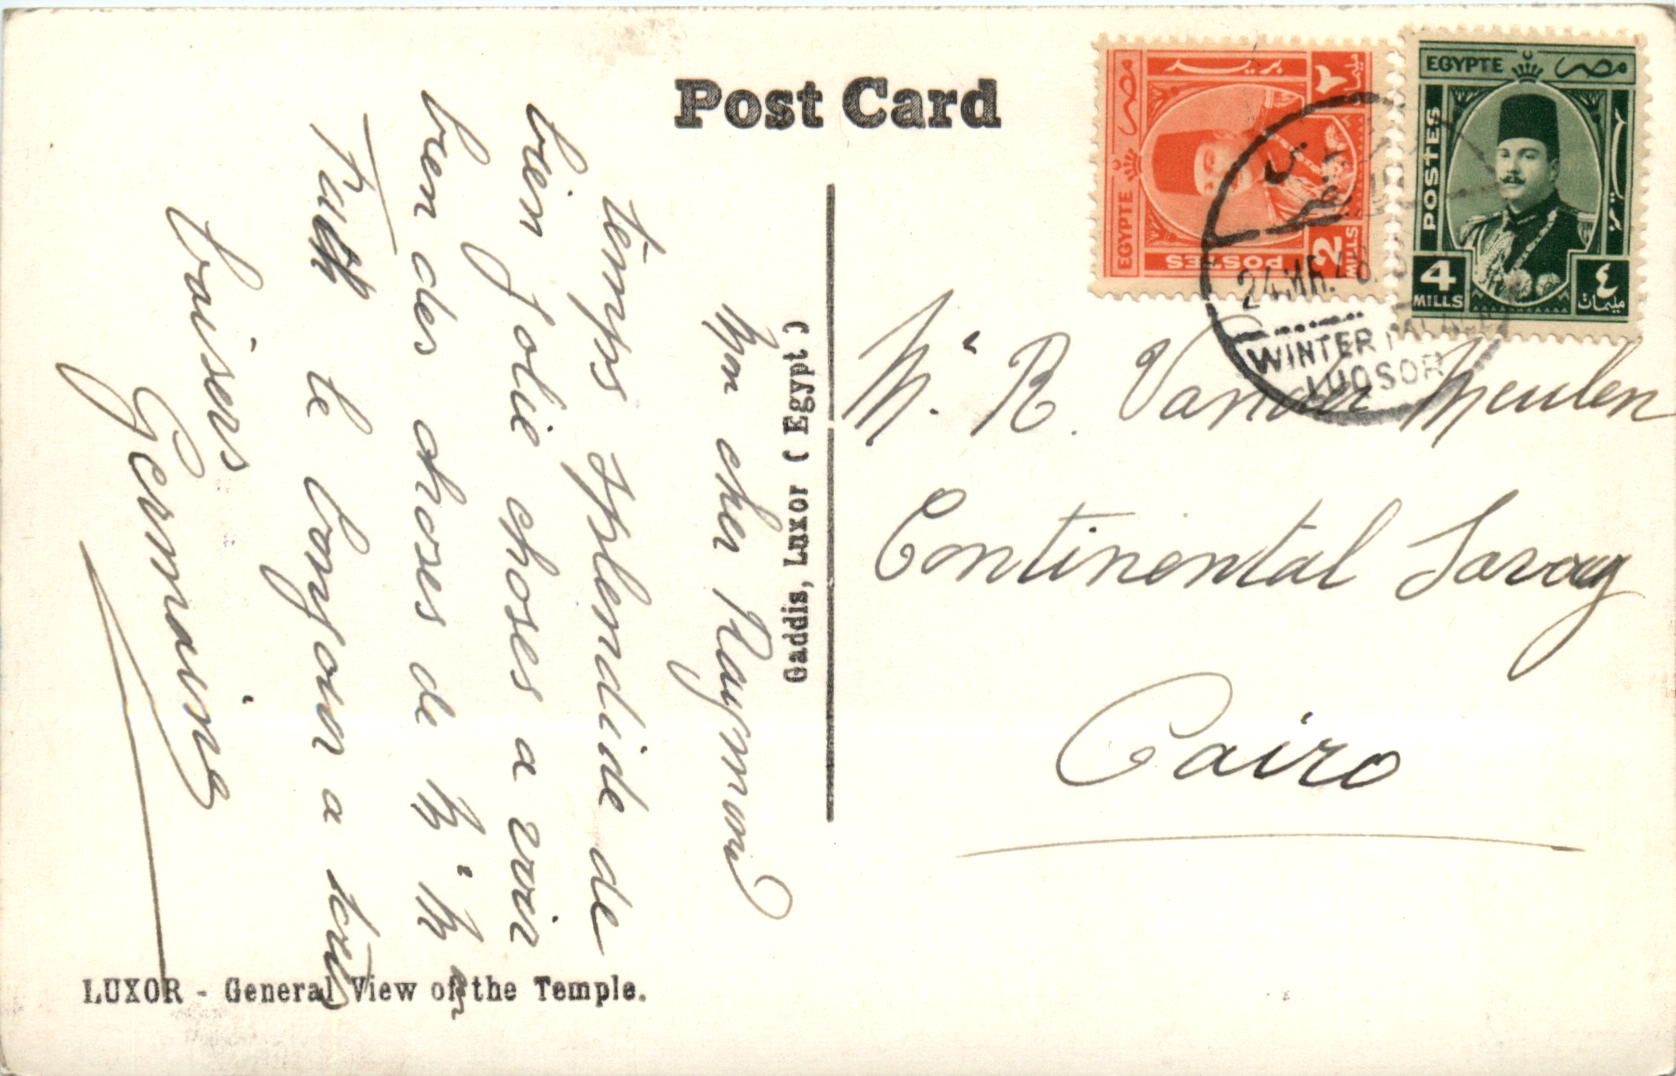 Post Card
EGYPTE
مصر
بريد
POSTES
2
MILLS
٢
EGYPTE
مصر
POSTES
بريد
4
MILLS
٤
مليمات
24.MR.48
WINTER PALACE
LUQSOR
Mr R. Vander Meulen
Continental Savoy
Cairo
Gaddis, Luxor (Egypt)
Mon cher Raymond
temps splendide de
bien jolie choses a voir
bien des choses de
Tutti le bonjour a tous
baisers
Germaine
LUXOR - General View of the Temple.